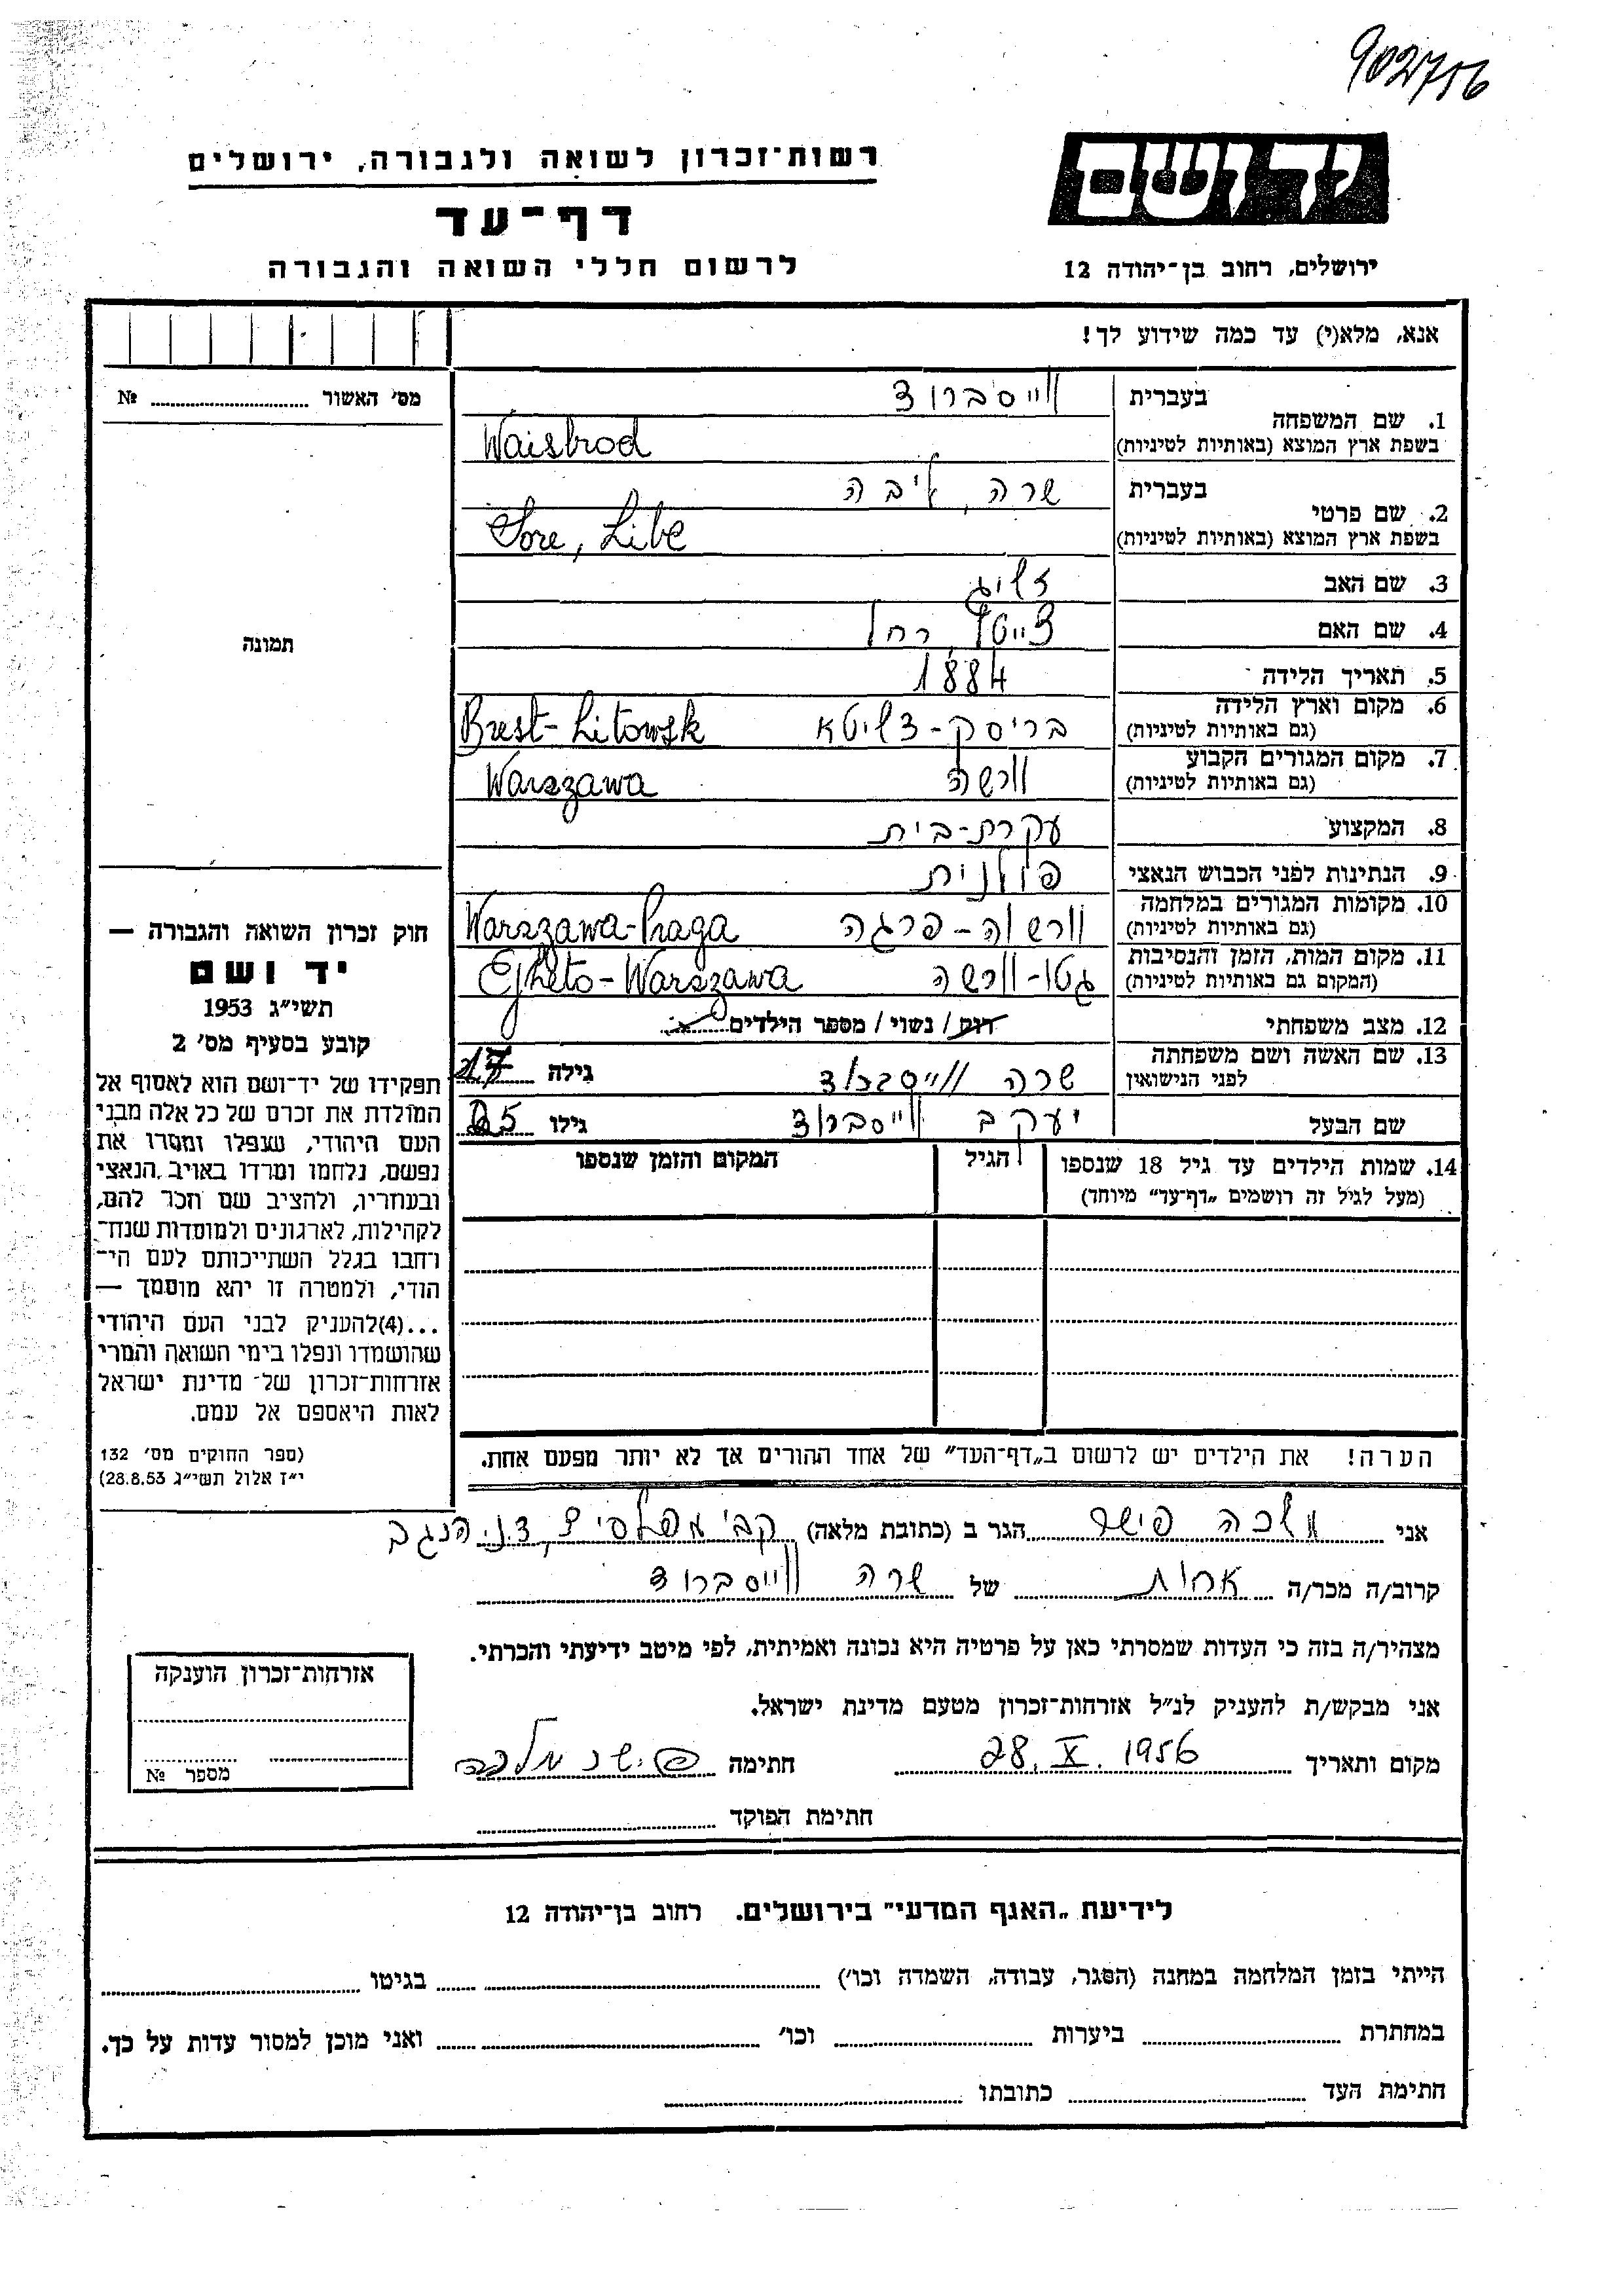 902756
רשות־זכרון לשואה ולגבורה, ירושלים
יד ושם
דף־עד
לרשום חללי השואה והגבורה
ירושלים, רחוב בן־יהודה 12
אנא, מלא(י) עד כמה שידוע לך!
מס׳ האשור № 
תמונה
1. שם המשפחה
בעברית ווייסברוד
בשפת ארץ המוצא (באותיות לטיניות) Waisbrod
2. שם פרטי
בעברית שרה, ליבה
בשפת ארץ המוצא (באותיות לטיניות) Sore, Libe
3. שם האב זליג
4. שם האם רחל
5. תאריך הלידה 1884
6. מקום וארץ הלידה
(גם באותיות לטיניות) בריסק-דליטא Brest-Litowsk
7. מקום המגורים הקבוע
(גם באותיות לטיניות) וורשה Warszawa
8. המקצוע עקרת-בית
9. הנתינות לפני הכבוש הנאצי פולנית
10. מקומות המגורים במלחמה
(גם באותיות לטיניות) וורשה-פרגה Warszawa-Praga
11. מקום המות, הזמן והנסיבות
(המקום גם באותיות לטיניות) גטו-וורשה Gheto-Warszawa
12. מצב משפחתי רווק/ נשוי/ מספר הילדים
13. שם האשה ושם משפחתה
לפני הנישואין שרה ווייסברוד גילה
שם הבעל יעקב ווייסברוד גילו
14. שמות הילדים עד גיל 18 שנספו
(מעל לגיל זה רושמים „דף־עד״ מיוחד)
הגיל
המקום והזמן שנספו
הערה! את הילדים יש לרשום ב„דף־העד״ של אחד ההורים אך לא יותר מפעם אחת.
חוק זכרון השואה והגבורה —
יד ושם
תשי״ג 1953
קובע בסעיף מס׳ 2
תפקידו של יד־ושם הוא לאסוף אל
המולדת את זכרם של כל אלה מבני
העם היהודי, שנפלו ומסרו את
נפשם, נלחמו ומרדו באויב הנאצי
ובעוזריו, ולהציב שם וזכר להם,
לקהילות, לארגונים ולמוסדות שנח־
רבו בגלל השתייכותם לעם הי־
הודי, ולמטרה זו יהא מוסמך —
...(4)להעניק לבני העם היהודי
שהושמדו ונפלו בימי השואה והמרי
אזרחות־זכרון של מדינת ישראל
לאות היאספם אל עמם.
(ספר החוקים מס׳ 132
י״ז אלול תשי״ג 28.8.53)
אני מלכה פישר הגר ב (כתובת מלאה) קב׳ מפלסים, ד.נ. הנגב
קרוב/ה מכר/ה אחות של שרה ווייסברוד
מצהיר/ה בזה כי העדות שמסרתי כאן על פרטיה היא נכונה ואמיתית, לפי מיטב ידיעתי והכרתי.
אני מבקש/ת להעניק לנ״ל אזרחות־זכרון מטעם מדינת ישראל.
מקום ותאריך 28. X. 1956 חתימה פישר מלכה
חתימת הפוקד
אזרחות־זכרון הוענקה
מספר №
לידיעת „האגף המדעי״ בירושלים. רחוב בן־יהודה 12
הייתי בזמן המלחמה במחנה (הסגר, עבודה, השמדה וכו׳) בגיטו
במחתרת ביערות וכו׳ ואני מוכן למסור עדות על כך.
חתימת העד כתובתו